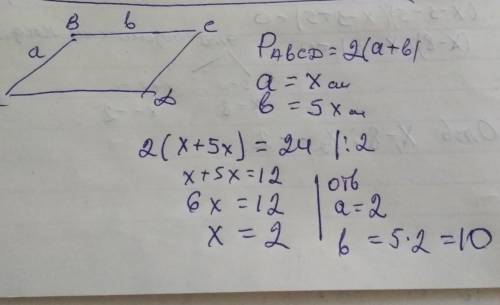 B b C
a
D
P ABCD = 2(a+b)
a = x см
b = 5x см
2(x+5x) = 24 |:2
x+5x=12
6x=12
x = 2
отв
a=2
b = 5·2 =10